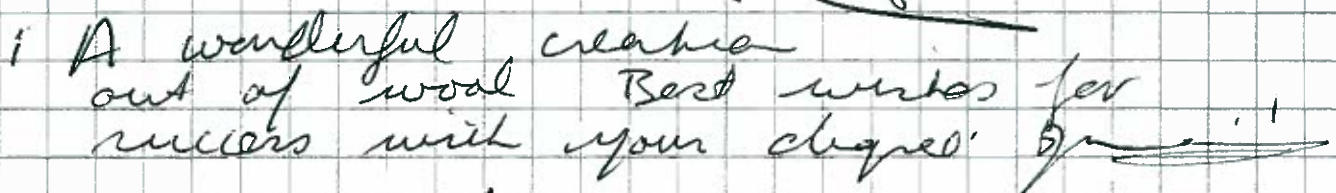 A wonderful creation
out of wool Best wishes for
success with your degree